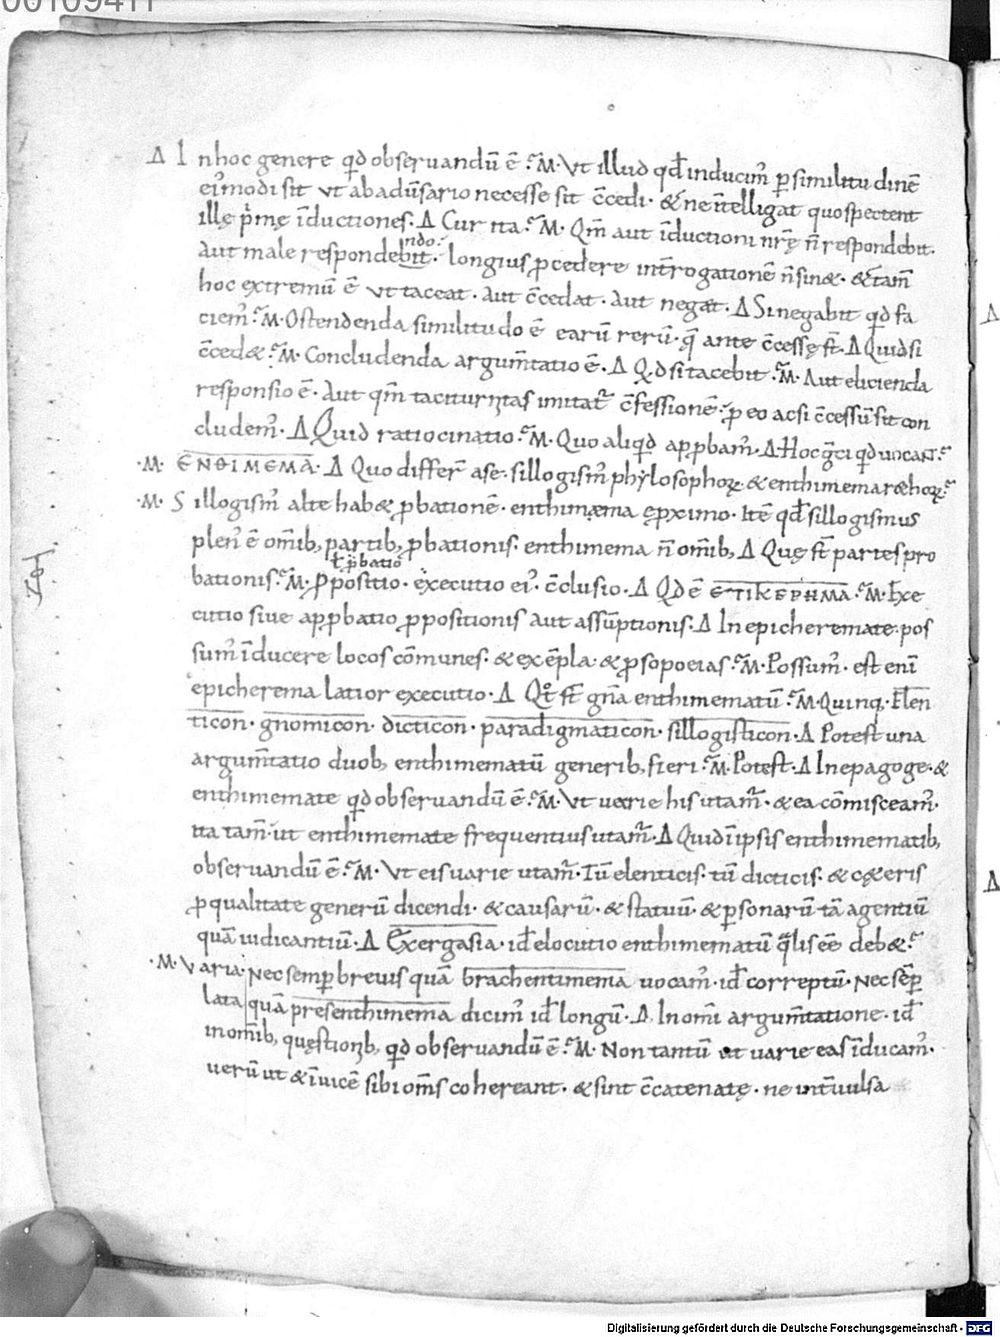 00109411
Δ In hoc genere qđ obseruandū ē ·M̄· Vt illud qđ inducim̄ ꝑ similitudinē
ei᾽ modi sit vt ab aduersario necesse sit c̄cedi· & ne īntelligat quo spectent
illę p̍mę īductiones· Δ Cur ita· M̄· Qm̄ aut īductioni nr̄ę n̄ respondebit·
aut male respondebit· ndo· longius ꝓcedere int̄rogationē n̄ sinæ· & tam̄
hoc extremū ē vt taceat· aut c̄cedat· aut negat· Δ Si negabit qđ fa
ciem̄· M̄· Ostendenda similitudo ē earū rerū· q̄ ante c̄cessę st̄· Δ Quid si
c̄ced&· M̄· Concludenda argum̄tatio ē· Δ Qđ si tacebit· M̄· Aut elicienda
responsio ē· Aut qm̄ taciturnitas imitat᷑ c̄fessionē· ꝓ eo acsi c̄cessū sit con
cludem᾽· Δ Quid ratiocinatio· M̄· Quo aliqđ appbam᾽· Δ Hoc gͣci qđ uocant·
·M· ЄΝΘΙΜЄΜΑ· Δ Quo differt̄ a se· sillogism᾽ phylosophoꝝ· & enthimema rethoꝝ·
·M· Sillogism᾽ alte hab& ꝓbationē· enthimæma e ꝓximo· Itē qđ sillogismus
plen᾽ ē omib; partib; ꝓbationis· enthimema n̄ omib; Δ Quę st̄ partes pro
ł ꝓbatio
bationis· M̄· Ꝓpositio· execuutio ei᾽· c̄clusio· Δ Qđ ē ЄΠΙΚЄΡΗΜΑ· M̄· Exe
cutio siue appbatio ꝓpositionis aut assūptionis· Δ In epicheremate· pos
sum᾽ īducere locos cōmunes· & exēpla· & ꝓsopoeias· M̄· Possum᾽· est eni
epicherema latior executio· Δ Qt᾽ st̄ gn̄a enthimematū· M̄· Quinq· Elen
ticon· gnomicon· dicticon· paradigmaticon· sillogisticon· Δ Potest una
argum̄tatio duob; enthimematū generib; fieri· M̄· Potest· Δ In epagoge· &
enthimemate qđ obseruandū ē· M̄· Vt uarie his utam᷑· & ea cōmisceam᾽·
ita tam̄· ut enthimemate frequentius utam᷑· Δ Quid ī ipsis enthimematib;
obseruandū ē· M̄· Vt eis uarie utam᷑· Tū elenticis· tū dicticis· & cęteris
ꝓ qualitate generū dicendi· & causarū· & statuū· & ꝑsonarū tā agentiū
quā iudicantiū· Δ Exergasia· id ē elocutio enthimematū qͣlis eē deb&·
·M· Varia· Nec semꝑ breuis quā brachentimema uocam᾽· iđ correptū· Nec sēꝑ
lata quā presenthimema dicim᾽ iđ longū· Δ In om̄i argum̄tatione· iđ
in omib; quęstionib; qđ obseruandū ē· M̄· Non tantū ut uarie eas īducam᾽·
uerū ut & īuicē sibi om̄s cohereant· & sint c̄catenatę· ne int̄uulsa
Digitalisierung gefördert durch die Deutsche Forschungsgemeinschaft - DFG